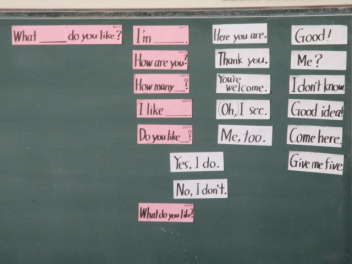 What ____ do you like?
I'm ____.
Here you are.
Good!
How are you?
Thank you.
Me?
How many __?
You're
welcome.
I don't know.
I like ____.
Oh, I see.
Good idea!
Do you like __?
Me, too.
Come here.
Yes, I do.
Give me five.
No, I don't.
What do you like?